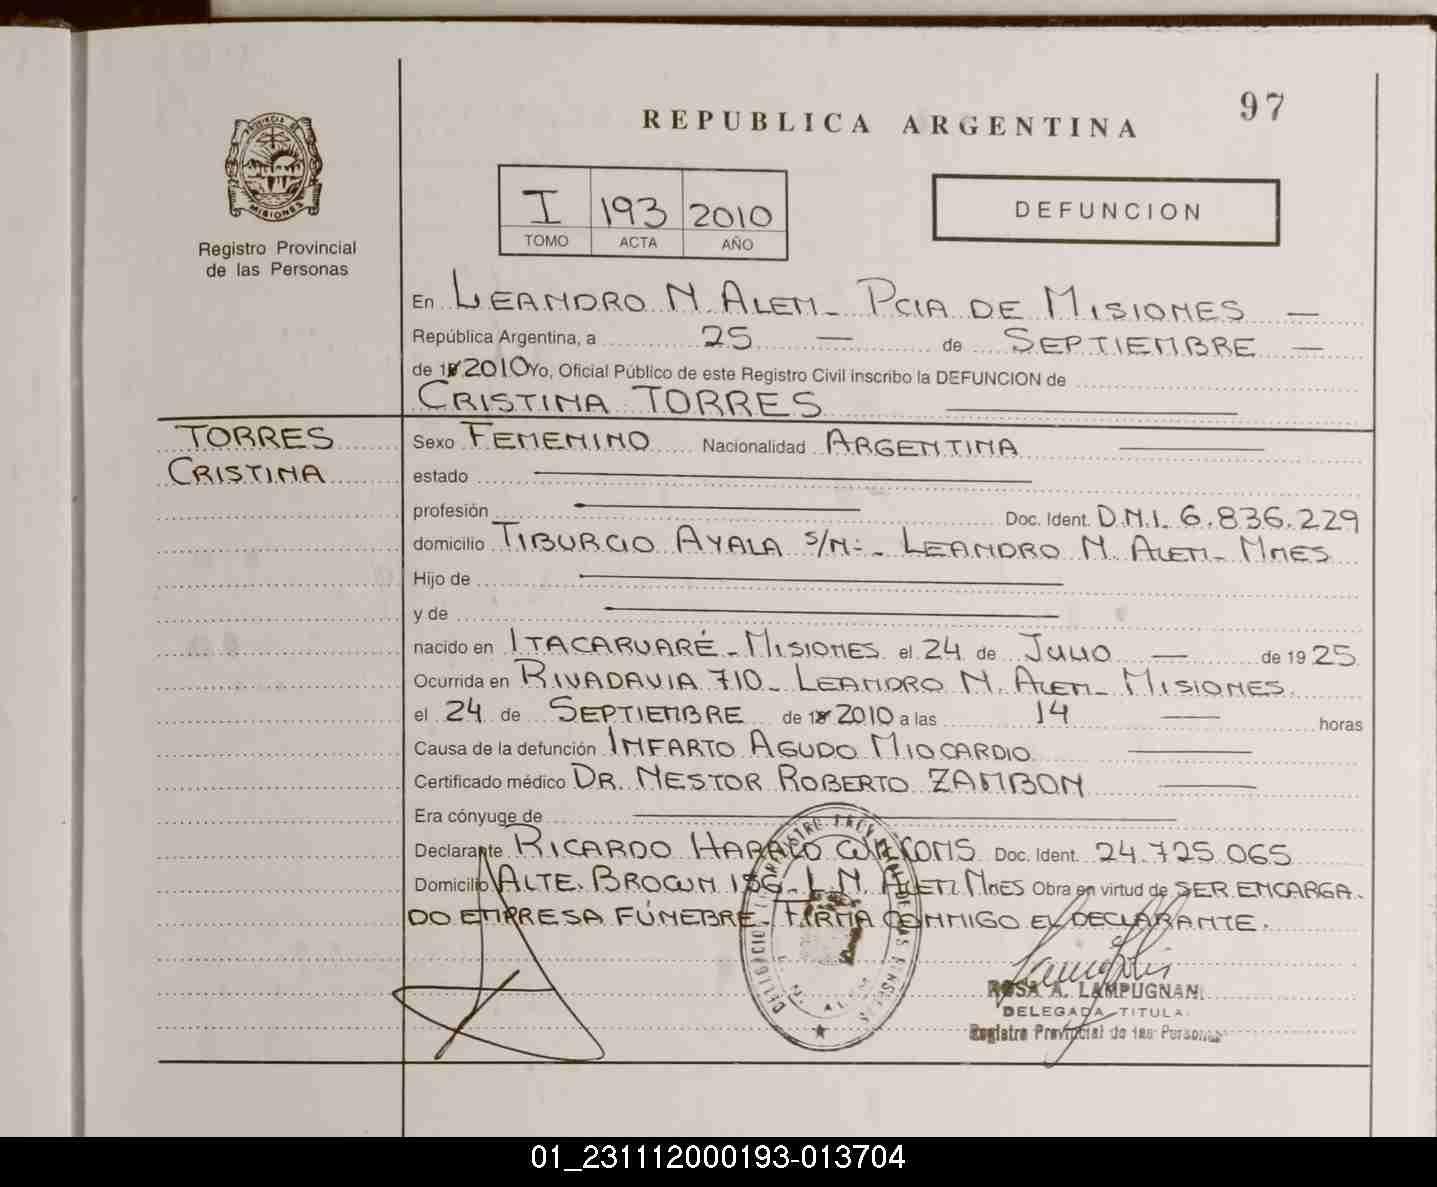 97
REPUBLICA ARGENTINA
PROVINCIA DE
MISIONES
Registro Provincial
de las Personas
I 193 2010
TOMO ACTA AÑO
DEFUNCION
En LEANDRO N. ALEM - PCIA DE MISIONES —
República Argentina, a 25 — de SEPTIEMBRE —
de 19 2010 Yo, Oficial Público de este Registro Civil inscribo la DEFUNCION de
CRISTINA TORRES
TORRES
CRISTINA
Sexo FEMENINO Nacionalidad ARGENTINA
estado
profesión Doc. Ident. D.N.I. 6.836.229
domicilio TIBURCIO AYALA S/N:- LEANDRO N. ALEM - MNES
Hijo de
y de
nacido en ITACARUARÉ - MISIONES el 24 de JULIO — de 19 25
Ocurrida en RIVADAVIA 710 - LEANDRO N. ALEM - MISIONES
el 24 de SEPTIEMBRE de 19 2010 a las 14 — horas
Causa de la defunción INFARTO AGUDO MIOCARDIO
Certificado médico DR. NESTOR ROBERTO ZAMBON
Era cónyuge de
Declarante RICARDO HARALD Doc. Ident. 24.725.065
Domicilio ALTE. BROWN 186 - L.N. ALEM MNES Obra en virtud de SER ENCARGA-
DO EMPRESA FÚNEBRE. FIRMA CONMIGO EL DECLARANTE.
ROSA A. LAMPUGNANI
DELEGADA TITULAR
Registro Provincial de las Personas
01_231112000193-013704